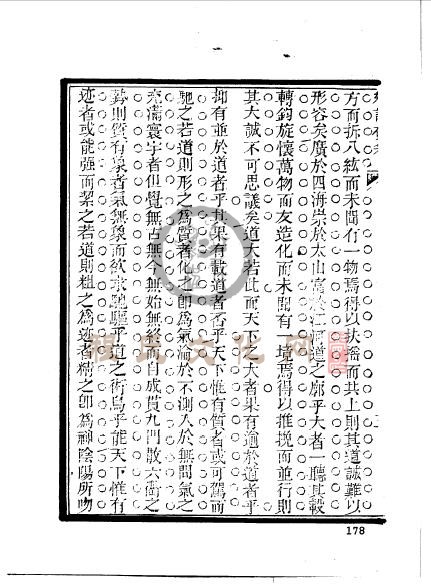 方而拆八紘而未聞有一物焉得以扶搖而共上則其道誠難以
形容矣廣於四海崇於太山富於江河道之廓乎大者一聽其轂
轉鈞旋懷萬物而友造化而未聞有一境焉得以推挽而並行則
其大誠不可思議矣道大若此而天下之大者果有逾於道者乎
抑有並於道者乎且果有載道者否乎天下惟有質者或可駕而
馳之若道則形之爲質者化之卽爲氣淪於不測入於無間氣之
充濡寰宇者但覺無古無今無始無終而自成貫九門散六衢之
勢則質有象者氣無象而欲求馳驅乎道之術烏乎能天下惟有
迹者或能强而絜之若道則粗之爲迹者精之卽爲神陰陽所吻
178